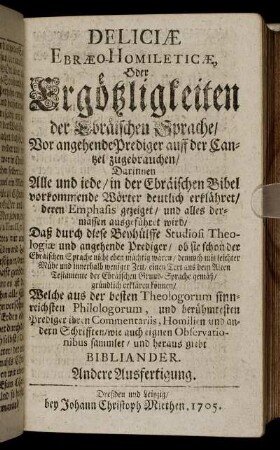 DELICIÆ
EBRÆO-HOMILETICÆ,
Oder
Ergötzligkeiten
der Ebräischen Sprache/
Vor angehende Prediger auff der Can-
tzel zugebrauchen/
Darinnen
Alle und iede/ in der Ebräischen Bibel
vorkommende Wörter deutlich erkläret/
deren Emphasis gezeiget/ und alles der-
massen ausgeführet wird/
Daß durch diese Beyhülffe Studiosi Theo-
logiæ und angehende Prediger/ ob sie schon der
Ebräischen Sprache nicht eben mächtig wären/ dennoch mit leichter
Mühe und innerhalb weniger Zeit/ einen Text aus dem Alten
Testamente der Ebräischen Grund-Sprache gemäß/
gründlich erklären können/
Welche aus der besten Theologorum sinn-
reichsten Philologorum, und berühmtesten
Prediger ihren Commentariis, Homilien und an-
dern Schrifften/ wie auch eignen Observatio-
nibus sammlet/ und heraus giebt
BIBLIANDER.
Andere Ausfertigung.
Dreßden und Leipzig/
bey Johann Christoph Miethen, 1705.